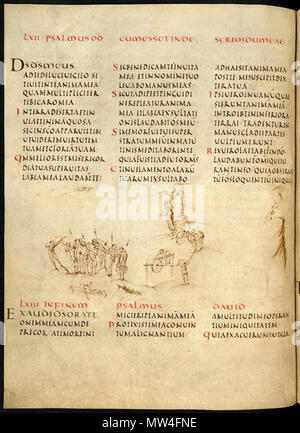 LXII PSALMUS DD CUM ESSET IN DE SERTO IDUMEAE
DSDSMEUS
ADTEDELUCEUIGILO SI
TIUITINTEANIMAMEA
QUAMMULTIPLICITER
TIBICAROMEA
INTERRADESERTAETIN
UIAETINAQUOSA
SICINSCOAPPARUITIBI
UTUIDERIMUIRTUTEM
TUAMETGLORIAMTUAM
QMMELIORESTMISERICOR
DIATUASUPERUITAS
LABIAMEALAUDABTTE
SICBENEDICAMTEINUITA
MEAETINNOMINETUO
LEUABOMANUSMEAS
SICUTADIPEETPINGUEDI
NEREPLEATURANIMA
MEAETLABIAEXULTATI
ONISLAUDABITOSMEU
SIMEMORFUITUISUPER
STRATUMMEUMINMATU
TINISMEDITABORINTE
QUIAFUISTIADIUTORMS
ETINUELAMENTOALARU
TUARUMEXULTABO
ADHAESITANIMAMEA
POSTTEMESUSCEPITDEX
TERATUA
IPSIUEROINUANUMQUAE
SIERUNTANIMAMMEA
INTROIBUNTININFERIORA
TERRAETRADENTURIN
MANUSGLADIIPARTES
UULPIUMERUNT
REXUEROLAETABITINDO
LAUDABUNTOMSQUIIU
RANTINEO QUIAOBSTRUC
TUESTOSLOQUENTIUINIQUA
LXIII IN FINEM PSALMUS DAUID
EXAUDIDSORATI
ONEMMEAMCUMDE
PRECOR ATIMOREINI
MICIERIPEANIMAMEA
PROTEXISTIMEACONUEN
TUMALIGNANTIUM
AMULTITUDINEOPERAN
TIUMINIQUITATEM
QUIAEXACUERUNTUTGLA